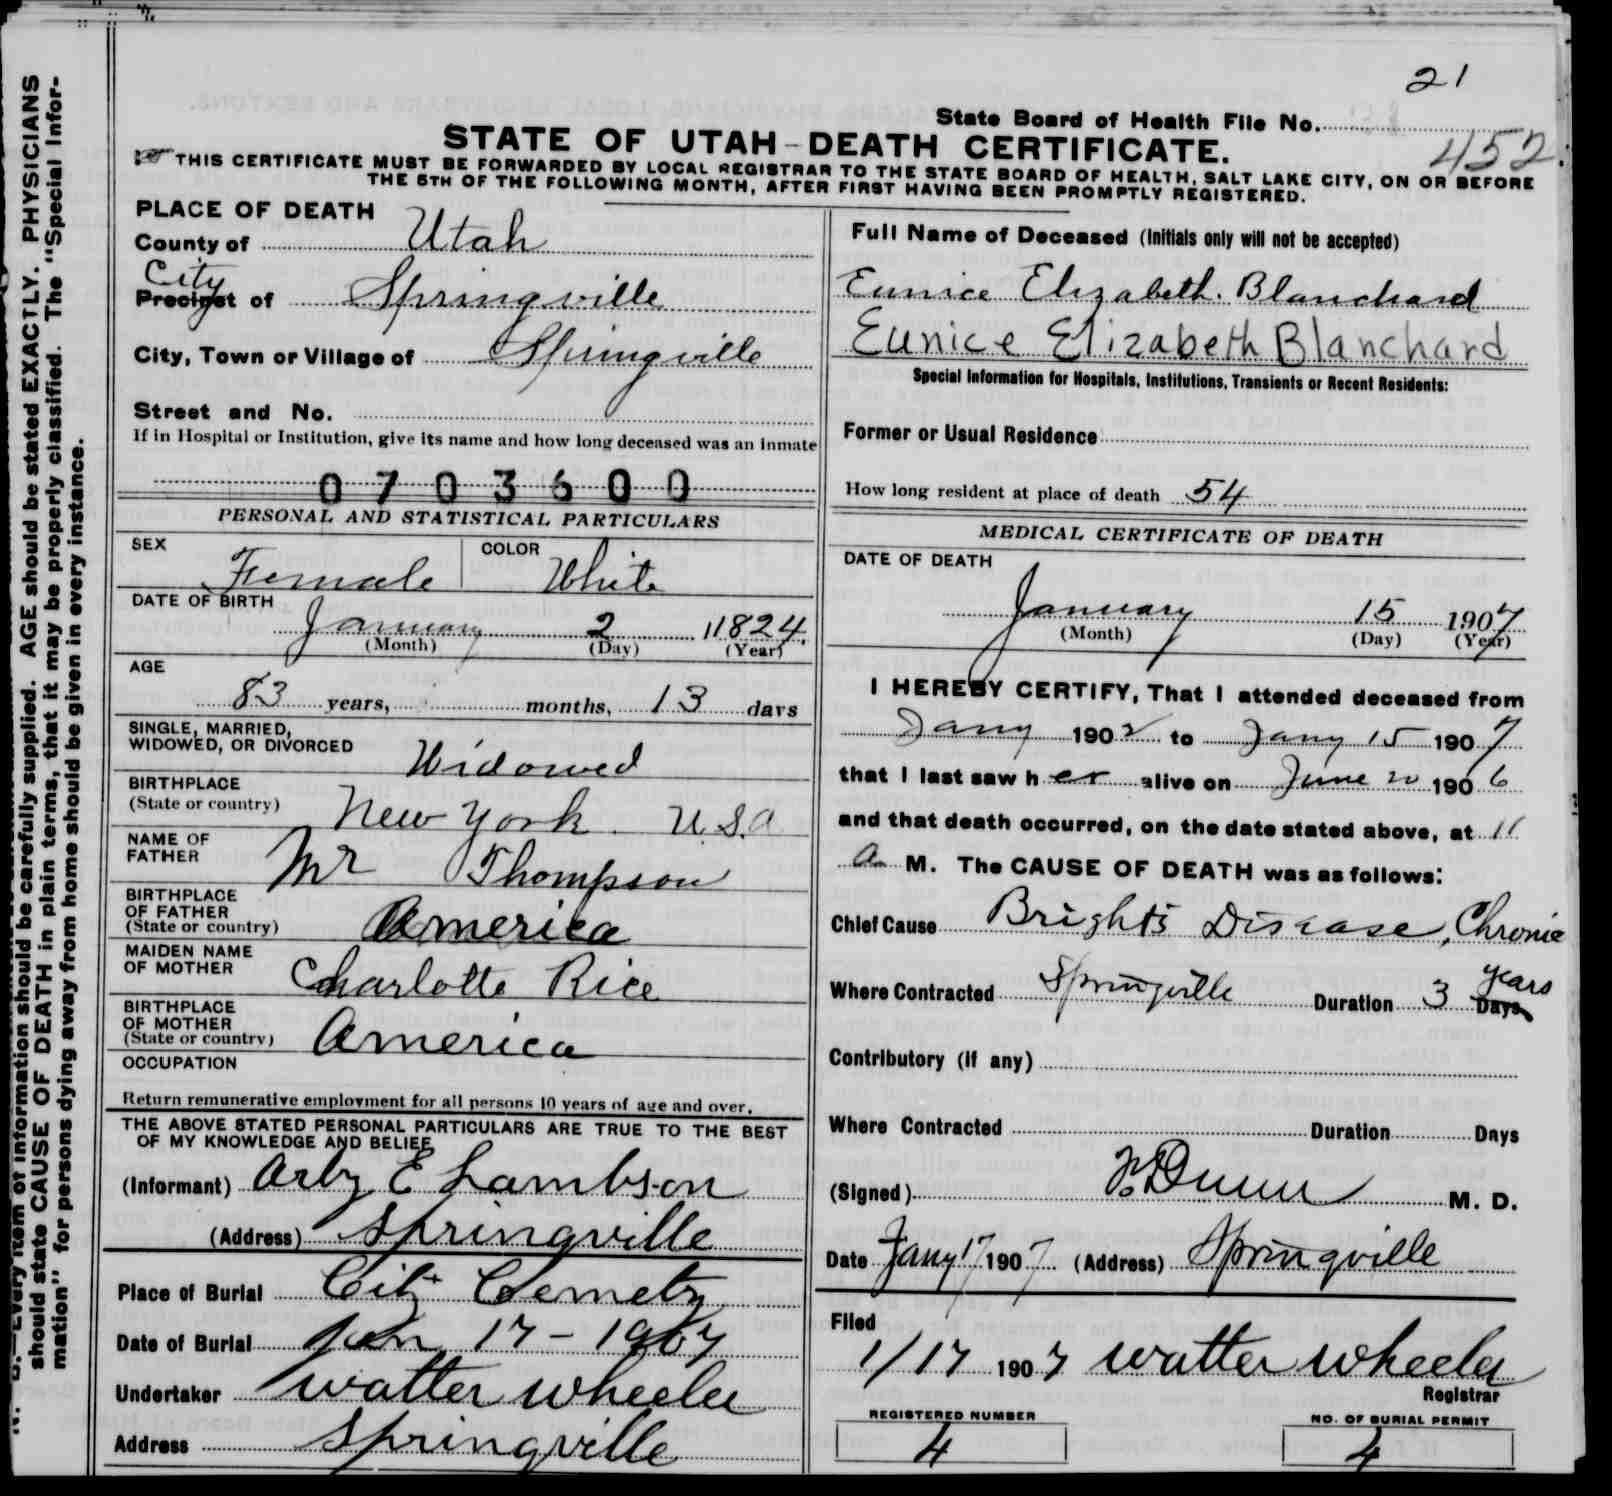 21
State Board of Health File No.
452
STATE OF UTAH-DEATH CERTIFICATE.
THIS CERTIFICATE MUST BE FORWARDED BY LOCAL REGISTRAR TO THE STATE BOARD OF HEALTH, SALT LAKE CITY, ON OR BEFORE
THE 5TH OF THE FOLLOWING MONTH, AFTER FIRST HAVING BEEN PROMPTLY REGISTERED.
PLACE OF DEATH
County of Utah
City
Precinct of Springville
City, Town or Village of Springville
Street and No.
If in Hospital or Institution, give its name and how long deceased was an inmate
0703600
PERSONAL AND STATISTICAL PARTICULARS
SEX Female COLOR White
DATE OF BIRTH
January 2 1824
(Month) (Day) (Year)
AGE
83 years, months, 13 days
SINGLE, MARRIED,
WIDOWED, OR DIVORCED Widowed
BIRTHPLACE
(State or country) New York U.S.A
NAME OF
FATHER Mr Thompson
BIRTHPLACE
OF FATHER
(State or country) America
MAIDEN NAME
OF MOTHER Charlotte Rice
BIRTHPLACE
OF MOTHER
(State or country) America
OCCUPATION
Return remunerative employment for all persons 10 years of age and over.
THE ABOVE STATED PERSONAL PARTICULARS ARE TRUE TO THE BEST
OF MY KNOWLEDGE AND BELIEF
(Informant) Arby E Lambson
(Address) Springville
Place of Burial City Cemetry
Date of Burial Jan 17-1907
Undertaker Walter Wheeler
Address Springville
Full Name of Deceased (Initials only will not be accepted)
Eunice Elizabeth. Blanchard
Eunice Elizabeth Blanchard
Special Information for Hospitals, Institutions, Transients or Recent Residents:
Former or Usual Residence
How long resident at place of death 54
MEDICAL CERTIFICATE OF DEATH
DATE OF DEATH
January 15 1907
(Month) (Day) (Year)
I HEREBY CERTIFY, That I attended deceased from
Jany 1902 to Jany 15 1907
that I last saw her alive on June 20 1906
and that death occurred, on the date stated above, at 11
a M. The CAUSE OF DEATH was as follows:
Chief Cause Brights Disease, Chronic
Where Contracted Springville Duration 3 years Days
Contributory (if any)
Where Contracted Duration Days
(Signed) Dunn M. D.
Date Jany 17 1907 (Address) Springville
Filed
1/17 1907 Walter Wheeler
Registrar
REGISTERED NUMBER
4
NO. OF BURIAL PERMIT
4
should state CAUSE OF DEATH in plain terms, that it may be properly classified. The "Special Infor-
mation" for persons dying away from home should be given in every instance.
Every item of information should be carefully supplied. AGE should be stated EXACTLY. PHYSICIANS